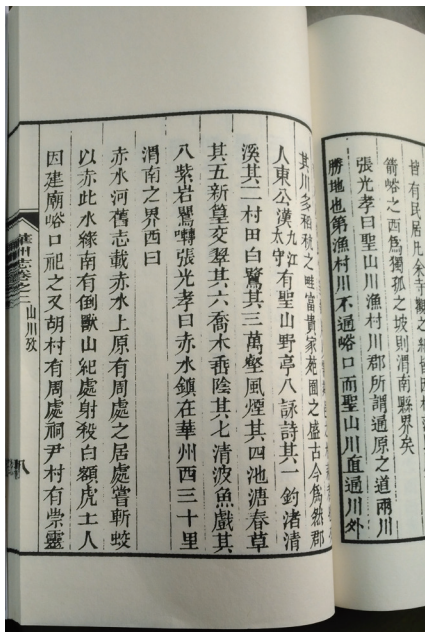 皆有民居凡朱寺觀之
箭峪之西爲獨孤之坡則渭南縣界矣
張光孝曰聖山川漁村川郡所謂通原之道兩川
勝地也第漁村川不通峪口而聖山川直通川外
其川多稻秫之畦富貴家苑囿之盛古今爲然郡
人東公漢九江太守有聖山野亭八詠詩其一釣渚清
溪其二村田白鷺其三萬壑風煙其四池溏春草
其五新篁交翠其六喬木垂陰其七清波魚戲其
八紫岩鸎囀張光孝曰赤水鎮在華州西三十里
渭南之界西曰
赤水河舊志載赤水上原有周處之居處嘗斬蛟
以赤此水緣南有倒獸山紀處射殺白額虎土人
因建廟峪口祀之又胡村有周處祠尹村有崇靈
華州志卷之二
山川攷
八